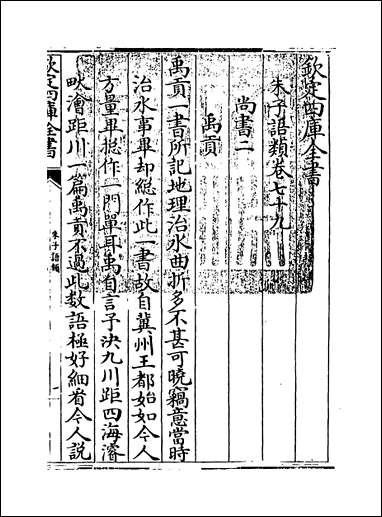 欽定四庫全書
朱子語類卷七十九
尚書二
禹貢
禹貢一書所記地理治水曲折多不甚可曉竊意當時
治水事畢却總作此一書故自冀州王都始如今人
方量畢總作一門單耳禹自言予決九川距四海濬
畎澮距川一篇禹貢不過此數語極好細看今人說
欽定四庫全書
朱子語類
一